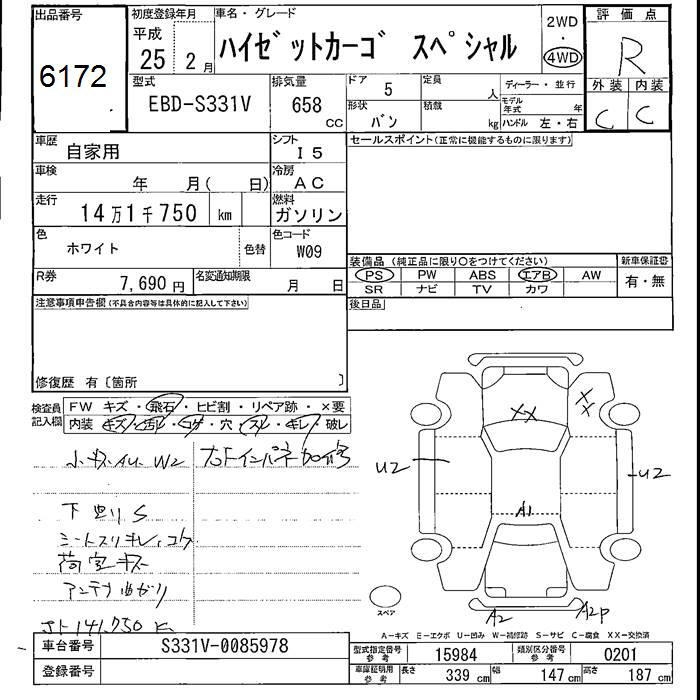 出品番号
6172
初度登録年月
平成
25 2月
車名・グレード
ハイゼットカーゴ スペシャル
2WD
・
4WD
評価点
R
外装 内装
C C
型式
EBD-S331V
排気量
658
CC
ドア 5
形状 バン
定員 人
積載 kg
ディーラー・並行
モデル年式 年
ハンドル 左・右
車歴
自家用
シフト
I5
セールスポイント(正常に機能するものに限ります)
車検
年 月( 日)
冷房
AC
走行
14万1千750 km
燃料
ガソリン
色
ホワイト
色替
色コード
W09
装備品 (純正品に限り○をつけてください)
新車保証書
PS PW ABS エアB AW
有・無
SR ナビ TV カワ
R券
7,690円
名変通知期限
月 日
後日品
注意事項申告欄(不具合内容等は具体的に記入して下さい)
修復歴 有〔箇所 〕
検査員
記入欄
FW キズ・飛石・ヒビ割・リペア跡・×要
内装 キズ・汚レ・コゲ・穴・スレ・キレ・破レ
小キズ AU W2
右ドインパネ加修
下廻りS
シートスリキレ、コゲ
荷室キズ
アンテナ曲がり
メーター 141,750 K
XX
XX
U2
U2
A1
A2
A2P
スペア
A-キズ E-エクボ U-凹み W-補修跡 S-サビ C-腐食 XX-交換済
車台番号
S331V-0085978
登録番号
型式指定番号
参考
15984
類別区分番号
参考
0201
車庫証明用
参考
長さ 339 cm
幅 147 cm
高さ 187 cm